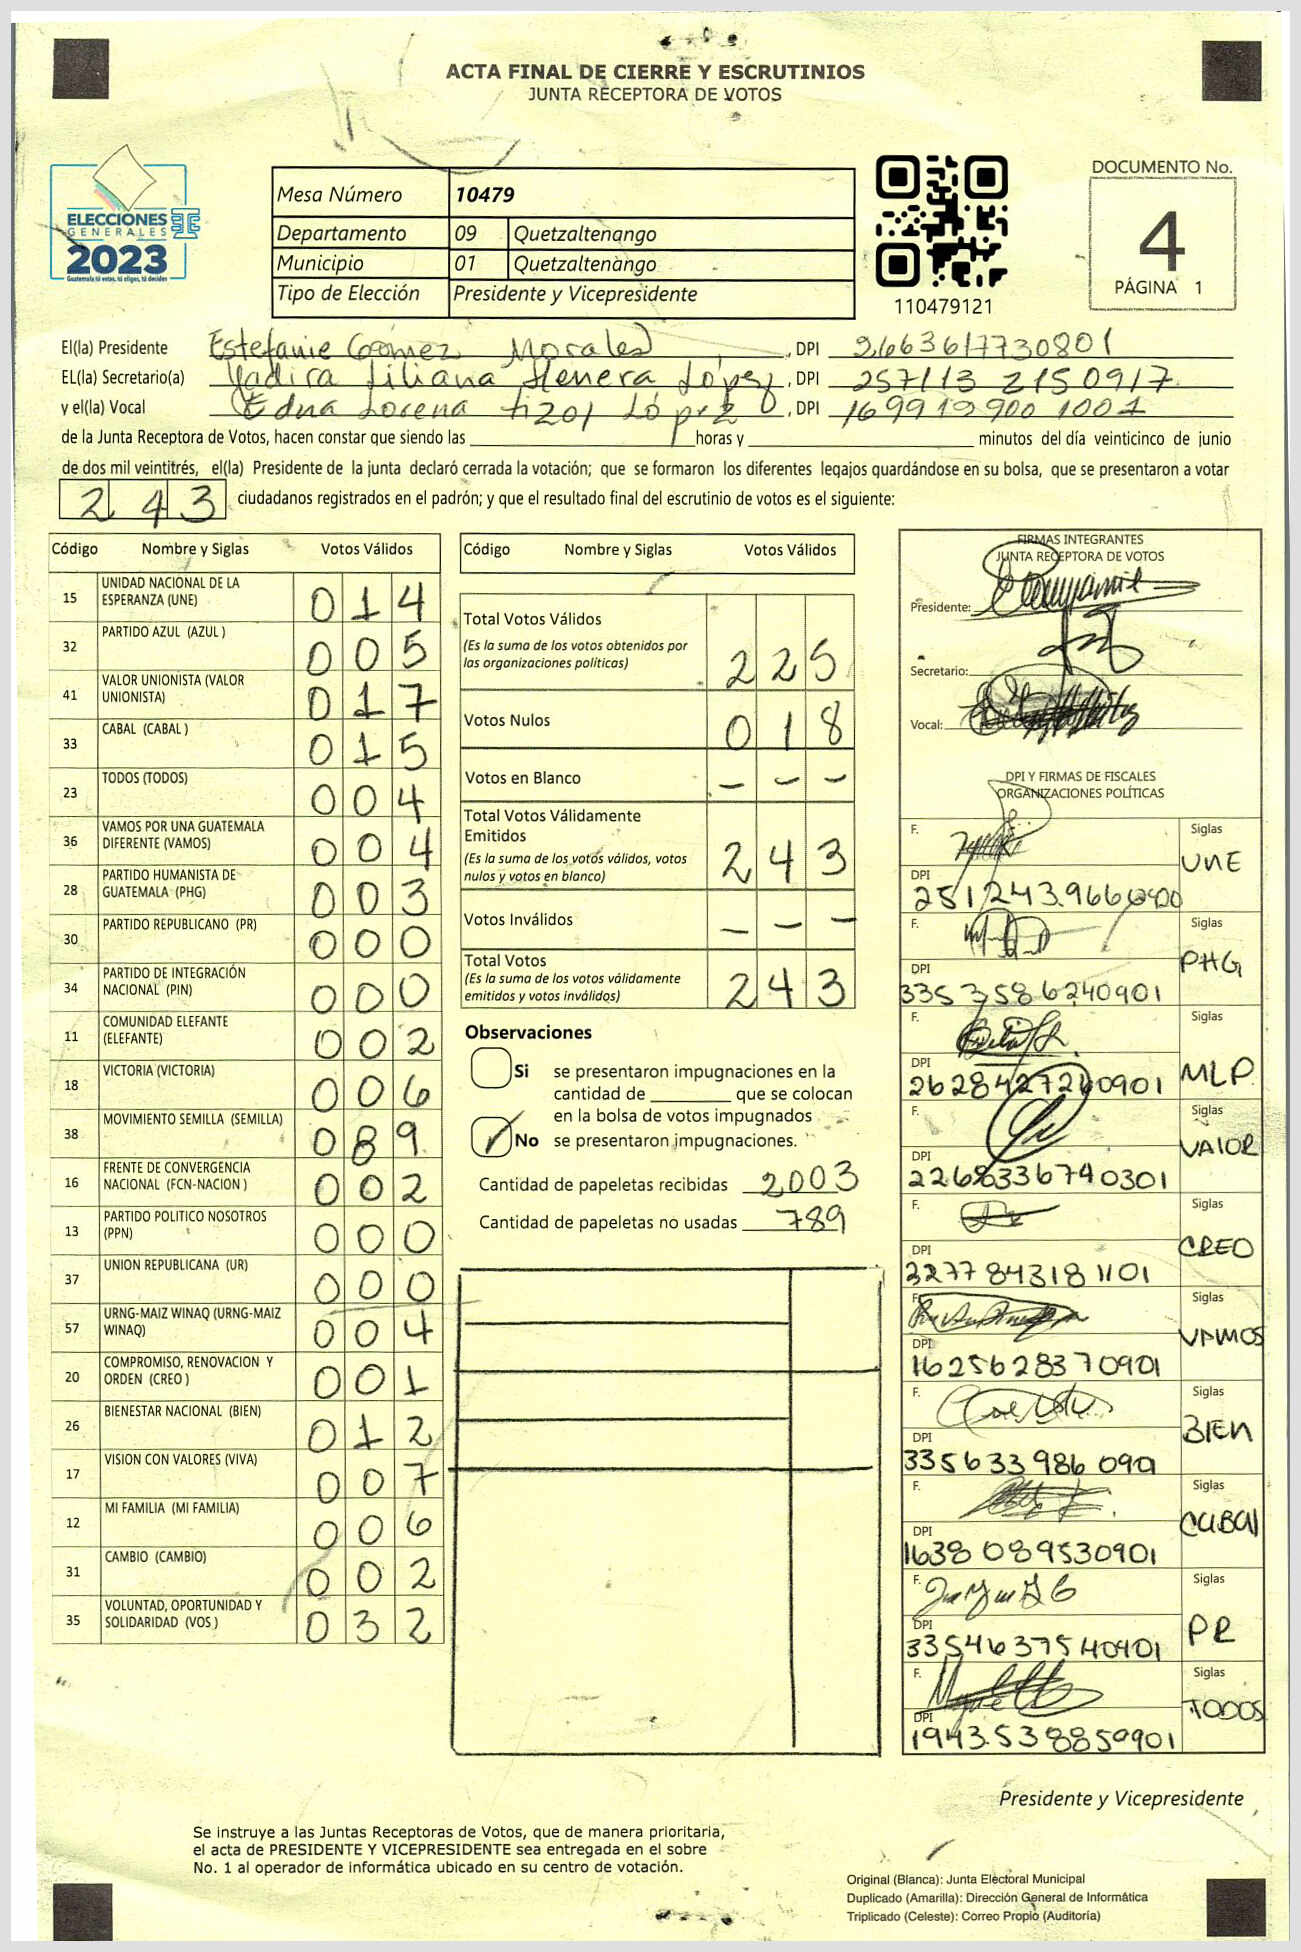 ACTA FINAL DE CIERRE Y ESCRUTINIOS
JUNTA RECEPTORA DE VOTOS
ELECCIONES
GENERALES
2023
Guatemala tú votas, tú eliges, tú decides
Mesa Número 10479
Departamento 09 Quetzaltenango
Municipio 01 Quetzaltenango
Tipo de Elección Presidente y Vicepresidente
110479121
DOCUMENTO No.
4
PÁGINA 1
El(la) Presidente Estefanie Gómez Morales, DPI 2663617730801
EL(la) Secretario(a) Yadira Liliana Herrera López, DPI 257113 2150917
y el(la) Vocal Edna Lorena tizol López, DPI 1699199001001
de la Junta Receptora de Votos, hacen constar que siendo las horas y minutos del día veinticinco de junio
de dos mil veintitrés, el(la) Presidente de la junta declaró cerrada la votación; que se formaron los diferentes legajos guardándose en su bolsa, que se presentaron a votar
243 ciudadanos registrados en el padrón; y que el resultado final del escrutinio de votos es el siguiente:
Código Nombre y Siglas Votos Válidos
15 UNIDAD NACIONAL DE LA ESPERANZA (UNE) 014
32 PARTIDO AZUL (AZUL ) 005
41 VALOR UNIONISTA (VALOR UNIONISTA) 017
33 CABAL (CABAL ) 015
23 TODOS (TODOS) 004
36 VAMOS POR UNA GUATEMALA DIFERENTE (VAMOS) 004
28 PARTIDO HUMANISTA DE GUATEMALA (PHG) 003
30 PARTIDO REPUBLICANO (PR) 000
34 PARTIDO DE INTEGRACIÓN NACIONAL (PIN) 000
11 COMUNIDAD ELEFANTE (ELEFANTE) 002
18 VICTORIA (VICTORIA) 006
38 MOVIMIENTO SEMILLA (SEMILLA) 089
16 FRENTE DE CONVERGENCIA NACIONAL (FCN-NACION ) 002
13 PARTIDO POLITICO NOSOTROS (PPN) 000
37 UNION REPUBLICANA (UR) 000
57 URNG-MAIZ WINAQ (URNG-MAIZ WINAQ) 004
20 COMPROMISO, RENOVACION Y ORDEN (CREO ) 001
26 BIENESTAR NACIONAL (BIEN) 012
17 VISION CON VALORES (VIVA) 007
12 MI FAMILIA (MI FAMILIA) 006
31 CAMBIO (CAMBIO) 002
35 VOLUNTAD, OPORTUNIDAD Y SOLIDARIDAD (VOS ) 032
Código Nombre y Siglas Votos Válidos
Total Votos Válidos 225
(Es la suma de los votos obtenidos por
las organizaciones políticas)
Votos Nulos 018
Votos en Blanco - - -
Total Votos Válidamente
Emitidos 243
(Es la suma de los votos válidos, votos
nulos y votos en blanco)
Votos Inválidos - - -
Total Votos 243
(Es la suma de los votos válidamente
emitidos y votos inválidos)
Observaciones
Si se presentaron impugnaciones en la
cantidad de que se colocan
en la bolsa de votos impugnados
No se presentaron impugnaciones.
Cantidad de papeletas recibidas 2003
Cantidad de papeletas no usadas 789
FIRMAS INTEGRANTES
JUNTA RECEPTORA DE VOTOS
Presidente:
Secretario:
Vocal:
DPI Y FIRMAS DE FISCALES
ORGANIZACIONES POLÍTICAS
F. Siglas UNE
DPI
F. Siglas PHG
DPI 3353586240901
F. Siglas MLP
DPI 2628427240901
F. Siglas VALOR
DPI 2268336740301
F. Siglas CREO
DPI 3277843181101
F. Siglas VAMOS
DPI 1625628370901
F. Siglas BIEN
DPI 335633986 0901
F. Siglas CABAl
DPI 1638089530901
F. Siglas PR
DPI 3354637540901
F. Siglas TODOS
DPI 1943538850901
Presidente y Vicepresidente
Se instruye a las Juntas Receptoras de Votos, que de manera prioritaria,
el acta de PRESIDENTE Y VICEPRESIDENTE sea entregada en el sobre
No. 1 al operador de informática ubicado en su centro de votación.
Original (Blanca): Junta Electoral Municipal
Duplicado (Amarilla): Dirección General de Informática
Triplicado (Celeste): Correo Propio (Auditoría)